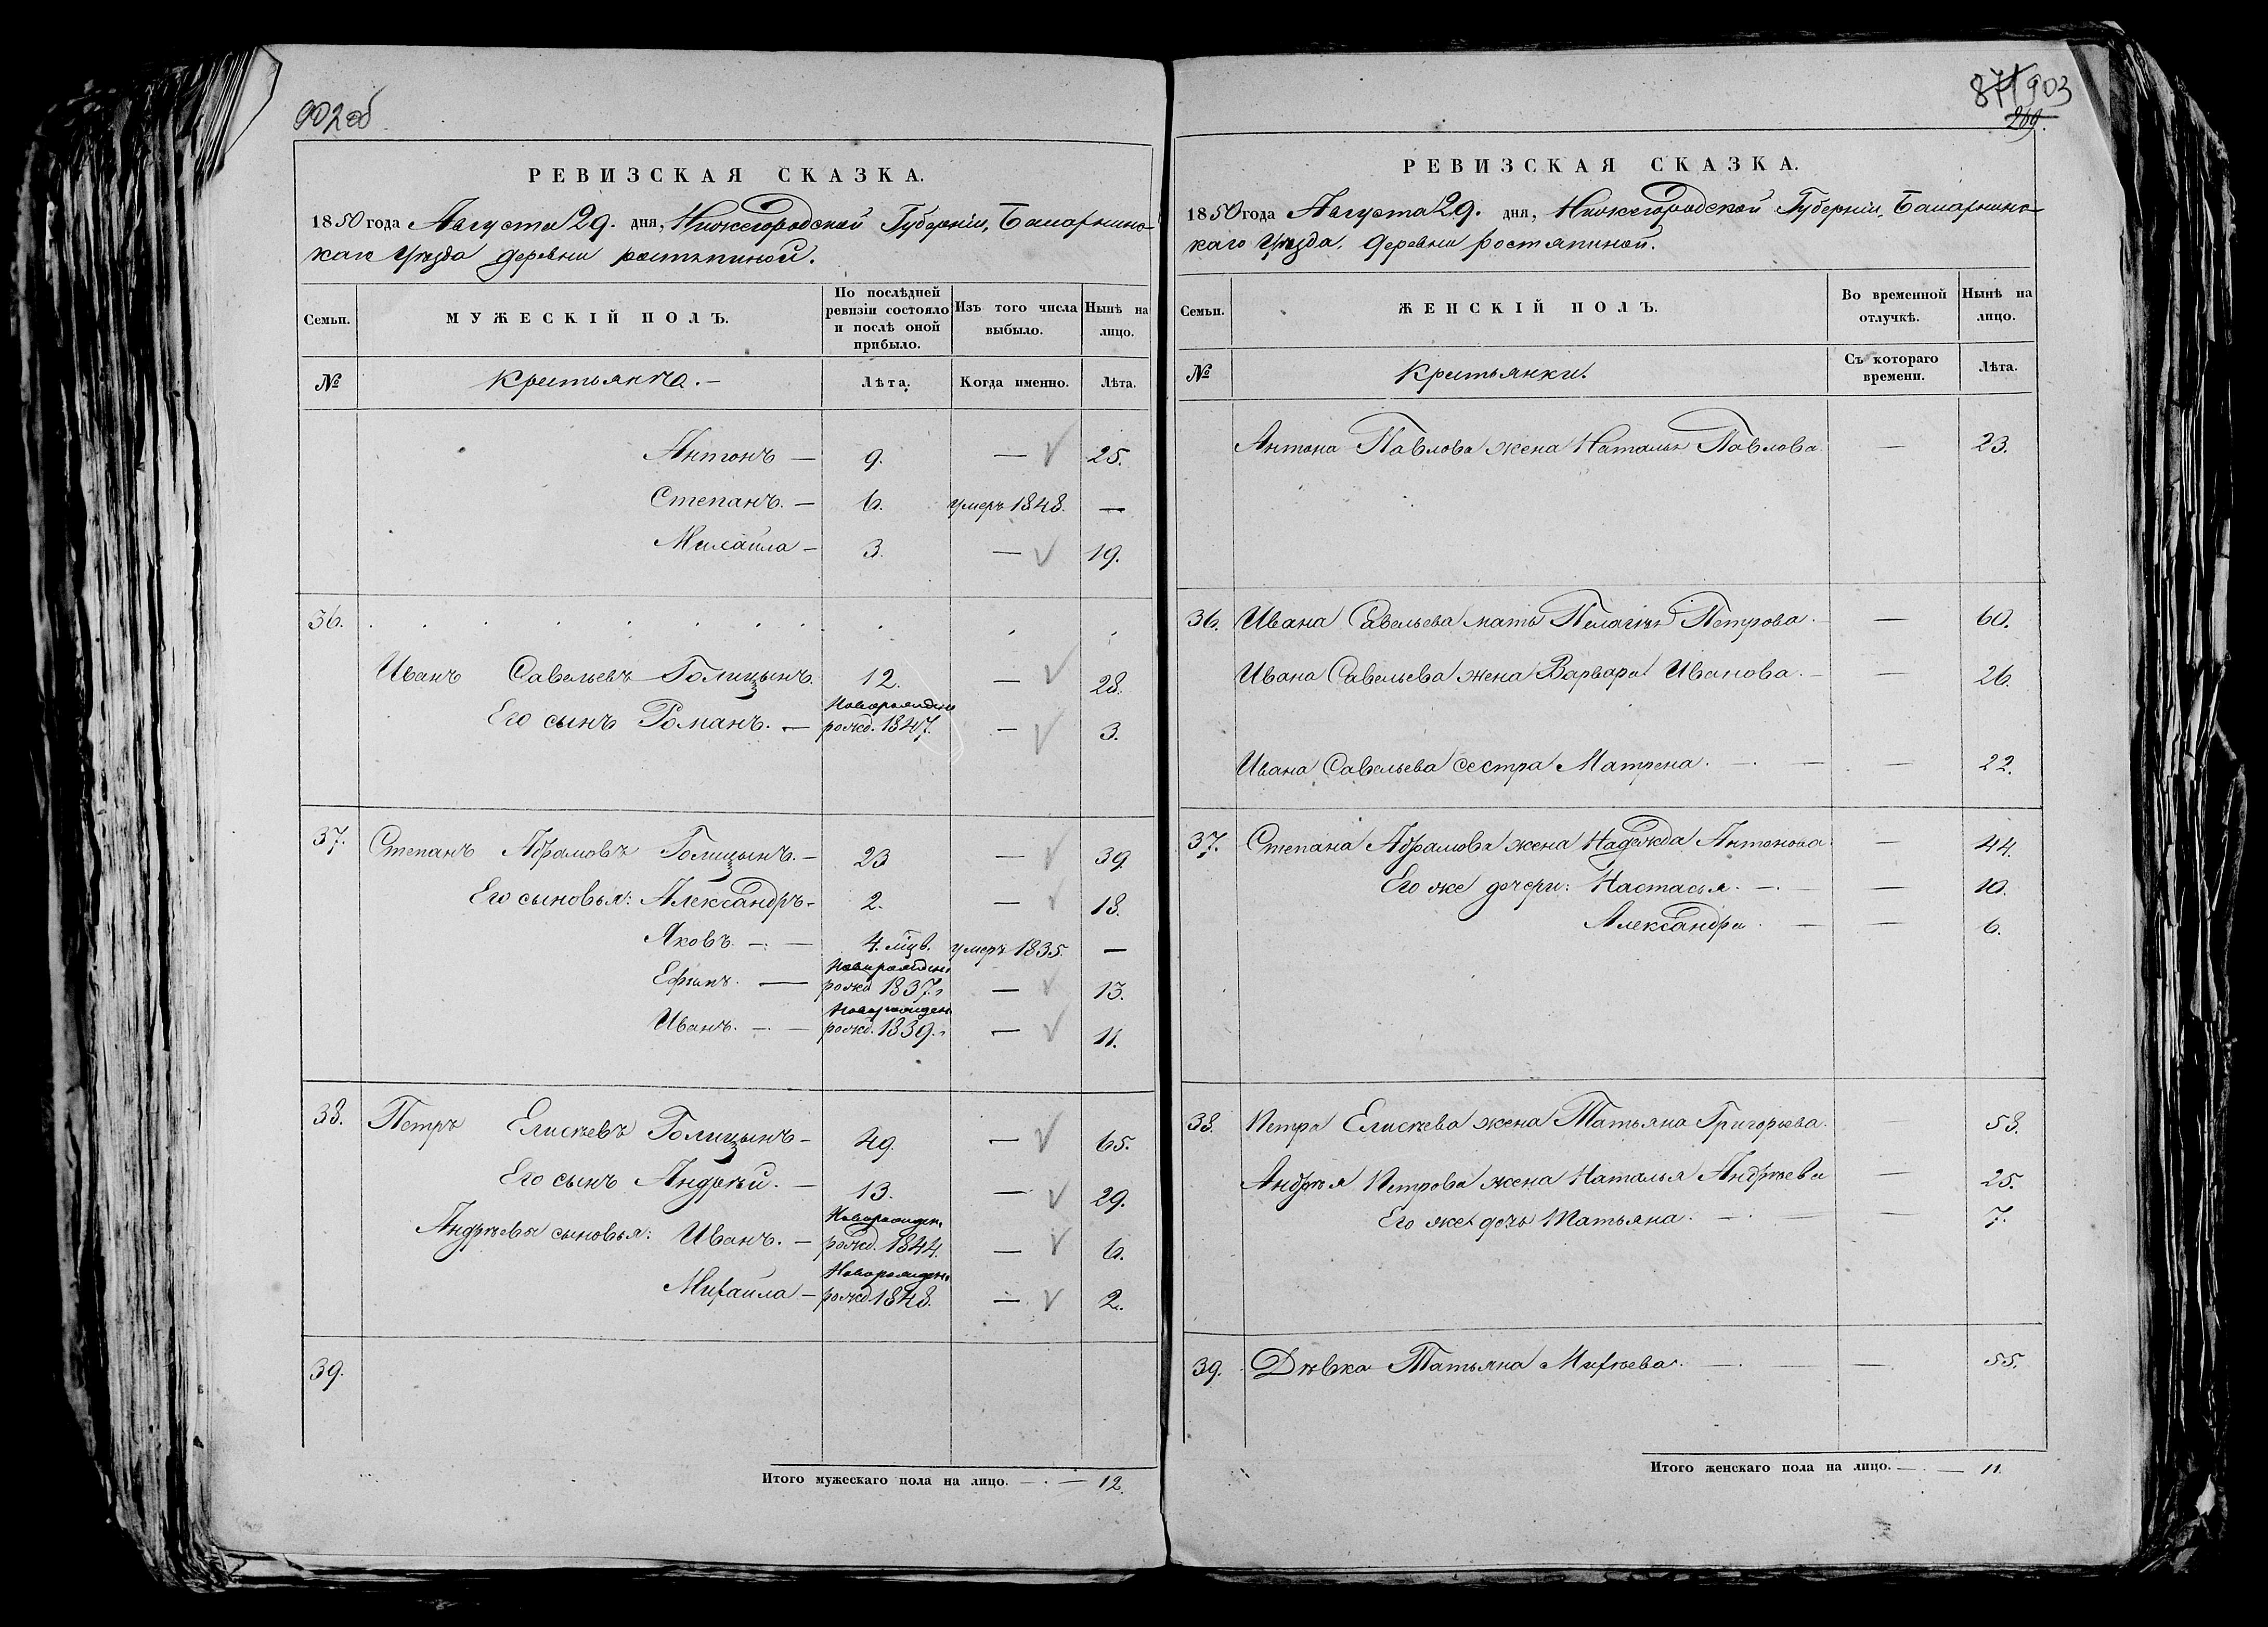 902об
РЕВИЗСКАЯ СКАЗКА.
1850 года Августа 29. дня, Нижегородской Губерніи, Балахнинс-
каго Уѣзда деревни ростяпиной.
Семьи. МУЖЕСКІЙ ПОЛЪ. По послѣдней ревизіи состояло и послѣ оной прибыло. Изъ того числа выбыло. Нынѣ на лицо.
№ Крестьянѣ. — Лѣта. Когда именно. Лѣта.
Антонъ — 9. — √ 25.
Степанъ. — 6. умеръ 1848. —
Михайла — 3. — √ 19.
36.
Иванъ Савельевъ Голицынъ 12. — √ 28.
Новорожден
Его сынъ Романъ. — рожд. 1847. — √ 3.
37. Степанъ Абрамовъ Голицынъ. — 23 — √ 39.
Его сыновья: Александръ — 2. — √ 18.
Яковъ. — 4. мцв. умеръ 1835. —
Новорожден.
Ефимъ. — рожд 1837. — √ 13.
Новорожден
Иванъ. — рожд. 1839. — √ 11.
38. Петръ Елисѣевъ Голицынъ — 49. — √ 65.
Его сынъ Андрѣй. — 13. — √ 29.
Новорожден.
Андрѣевы сыновья: Иванъ. — рожд. 1844. — √ 6.
Новорожден.
Михайла — рожд. 1848. — √ 2.
39.
Итого мужескаго пола на лицо. — 12.
871 903
269.
РЕВИЗСКАЯ СКАЗКА.
1850 года Августа 29. дня, Нижегородской Губерніи, Балахнинс-
каго Уѣзда, деревни ростяпиной.
Семьи. ЖЕНСКІЙ ПОЛЪ. Во временной отлучкѣ. Нынѣ на лицо.
№ Крестьянки. Съ котораго времени. Лѣта.
Антона Павлова жена Наталья Павлова. — 23.
36. Ивана Савельева мать Пелагѣя Петрова. — 60.
Ивана Савельева жена Варвара Иванова. — 26.
Ивана Савельева сестра Матрена. — — 22.
37. Степана Абрамова жена Надежда Антонова — 44.
Его же дочери: Настасья. — — 10.
Александра. — — 6.
38. Петра Елисѣева жена Татьяна Григорьева. — 58.
Андрѣя Петрова жена Наталья Андрѣева — 25.
Его же дочь Татьяна. — — 7.
39. Дѣвка Татьяна Михѣева. — — 55.
Итого женскаго пола на лицо. — 11.